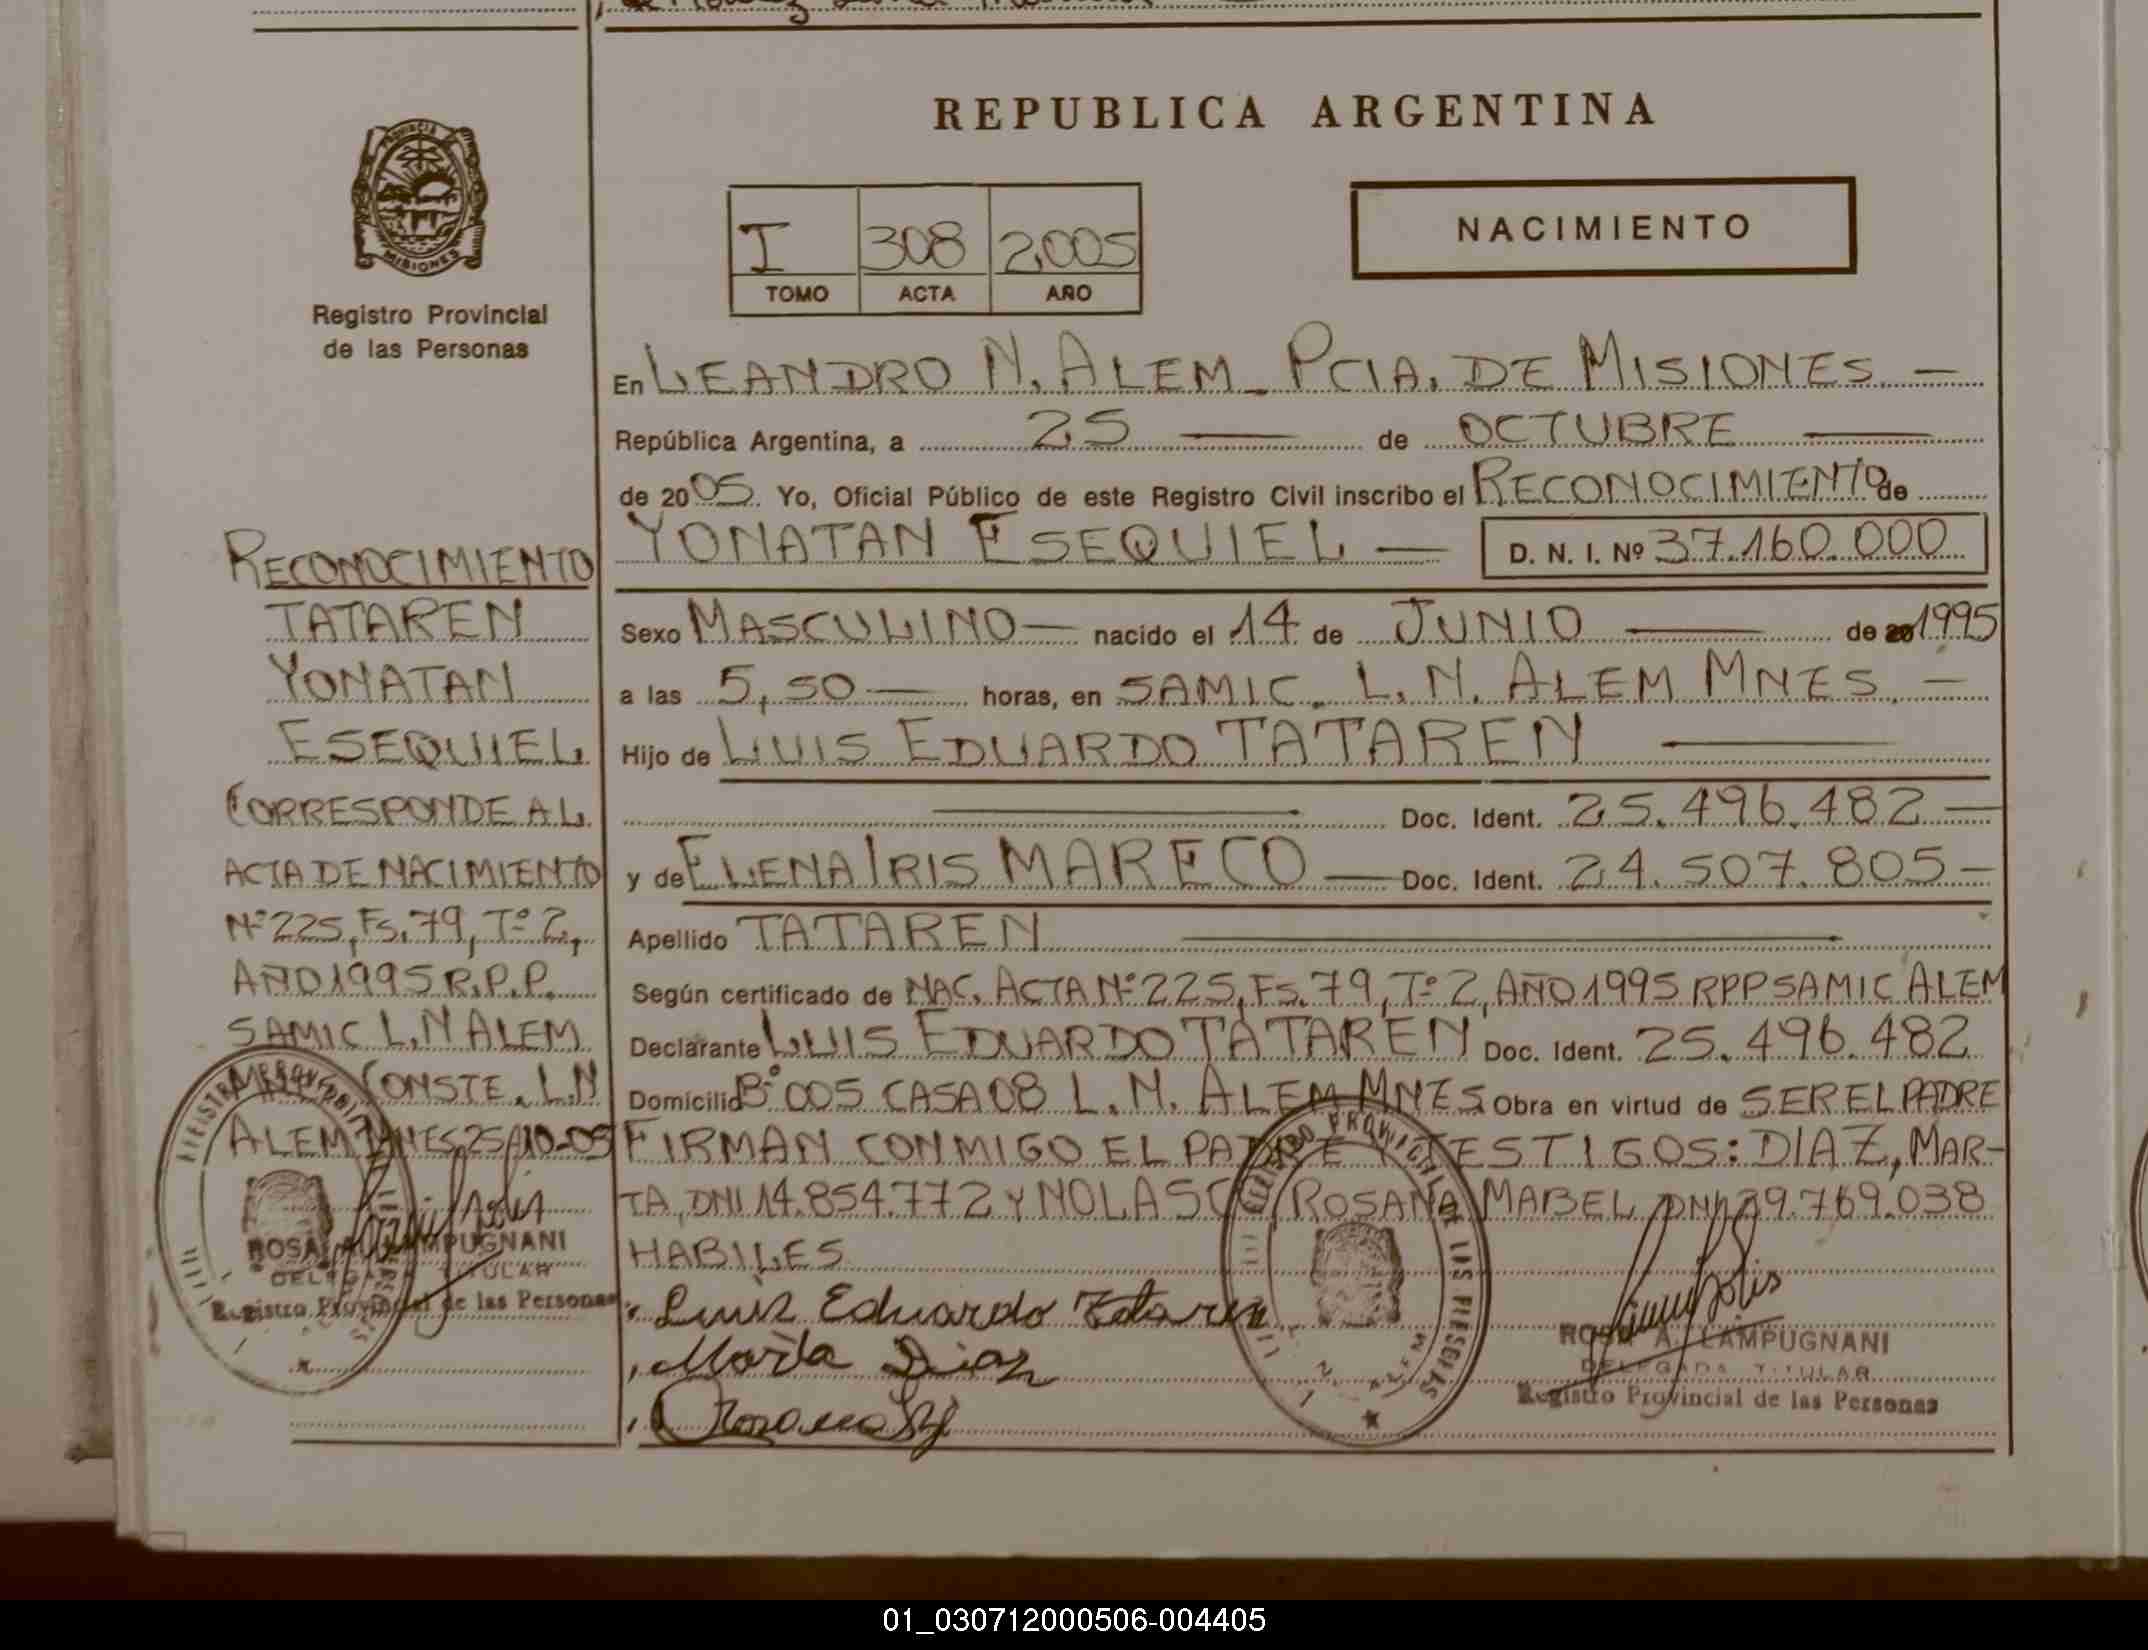 REPUBLICA ARGENTINA
PROVINCIA
MISIONES
Registro Provincial
de las Personas
I 308 2005
TOMO ACTA AÑO
NACIMIENTO
En LEANDRO N. ALEM - PCIA. DE MISIONES -
República Argentina, a 25 — de OCTUBRE —
de 2005. Yo, Oficial Público de este Registro Civil inscribo el RECONOCIMIENTO de
YONATAN ESEQUIEL — D. N. I. Nº 37.160.000
Sexo MASCULINO — nacido el 14 de JUNIO — de 20 1995
a las 5,50 — horas, en SAMIC. L. N. ALEM MNES. -
Hijo de LUIS EDUARDO TATAREN —
— Doc. Ident. 25.496.482 —
y de ELENA IRIS MARECO — Doc. Ident. 24.507.805 -
Apellido TATAREN —
Según certificado de NAC. ACTA Nº 225, Fs. 79, Tº 2, AÑO 1995 RPP SAMIC ALEM
Declarante LUIS EDUARDO TATAREN Doc. Ident. 25.496.482
Domicilio Bº 005 CASA 08 L. N. ALEM MNES Obra en virtud de SER EL PADRE
FIRMAN CONMIGO EL PADRE Y TESTIGOS: DIAZ, MAR-
TA, DNI 14.854.772 Y NOLASCO, ROSANA MABEL DNI 29.769.038
HABILES
Luis Eduardo Tataren
Marta Diaz
ROSA A. LAMPUGNANI
DELEGADA TITULAR
Registro Provincial de las Personas
RECONOCIMIENTO
TATAREN
YONATAN
ESEQUIEL
CORRESPONDE AL
ACTA DE NACIMIENTO
Nº 225, Fs. 79, Tº 2,
AÑO 1995 R.P.P.
SAMIC L. N ALEM
CONSTE. L. N
ALEM MNES 25-10-05
ROSA A. LAMPUGNANI
DELEGADA TITULAR
Registro Provincial de las Personas
01_030712000506-004405